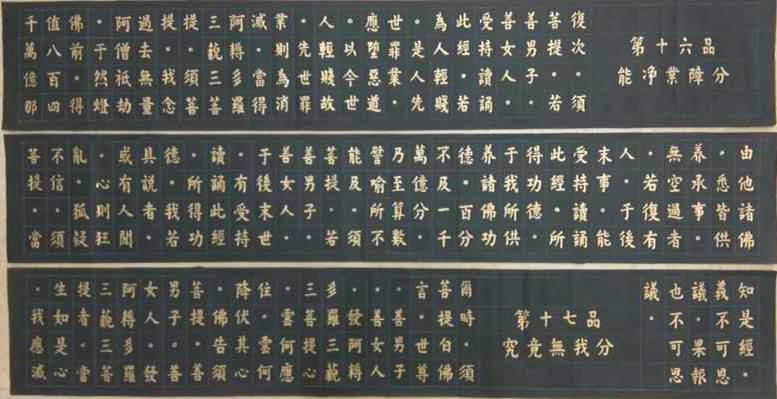 第十六品
能净業障分
復次。須
菩提。若
善男子。
善女人。
受持讀誦
此經。若
為人輕賤
。是人先
世罪業。
應墮惡道
。以今世
人輕賤故
。先世罪
業則為消
減。當得
阿耨多羅
三藐三菩
提。須菩
提。我念
過去無量
阿僧祇劫
。于然燈
佛前。得
值八百四
千萬億那
由他諸佛
。悉皆供
養承事。
無空過者
。若復有
人。于後
末事。能
受持讀誦
此經。所
得功德。
于我所供
養諸佛功
德。百分
不及一千
萬億分。
乃至算數
譬喻所不
能及。須
菩提。若
善男子。
善女人。
于後末世
。有受持
讀誦此經
。所得功
德。我若
具說者。
或有人聞
。心則狂
亂。狐疑
不信。須
菩提。當
知是經。
義不可思
議。果報
也不可思
議。
第十七品
究竟無我分
爾時。須
菩提白佛
言。世尊
。善男子
。善女人
。發阿耨
多羅三藐
三菩提心
。雲何應
住。雲何
降伏其心
。佛告須
菩提。善
男子。善
女人。發
阿耨多羅
三藐三菩
提者。當
生如是心
。我應滅